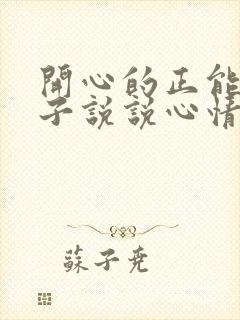 開心的正能
子說說心情
蘇子尭